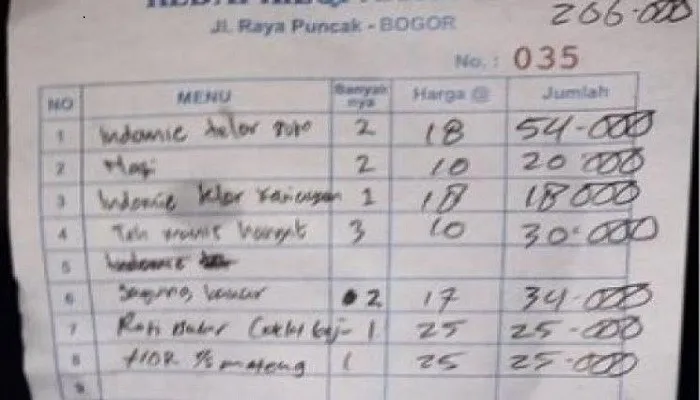 206-000
Jl. Raya Puncak - BOGOR
No. : 035
NO MENU Banyak nya Harga @ Jumlah
1 Indomie telor 2 18 54-000
2 Nasi 2 10 20-000
3 Indomie telor 1 18 18000
4 Teh manis hangat 3 10 30-000
5 Indomie
6 Jagung bakar 2 17 34-000
7 Roti Bakar 1 25 25-000
8 1/2 mateng 1 25 25-000
9